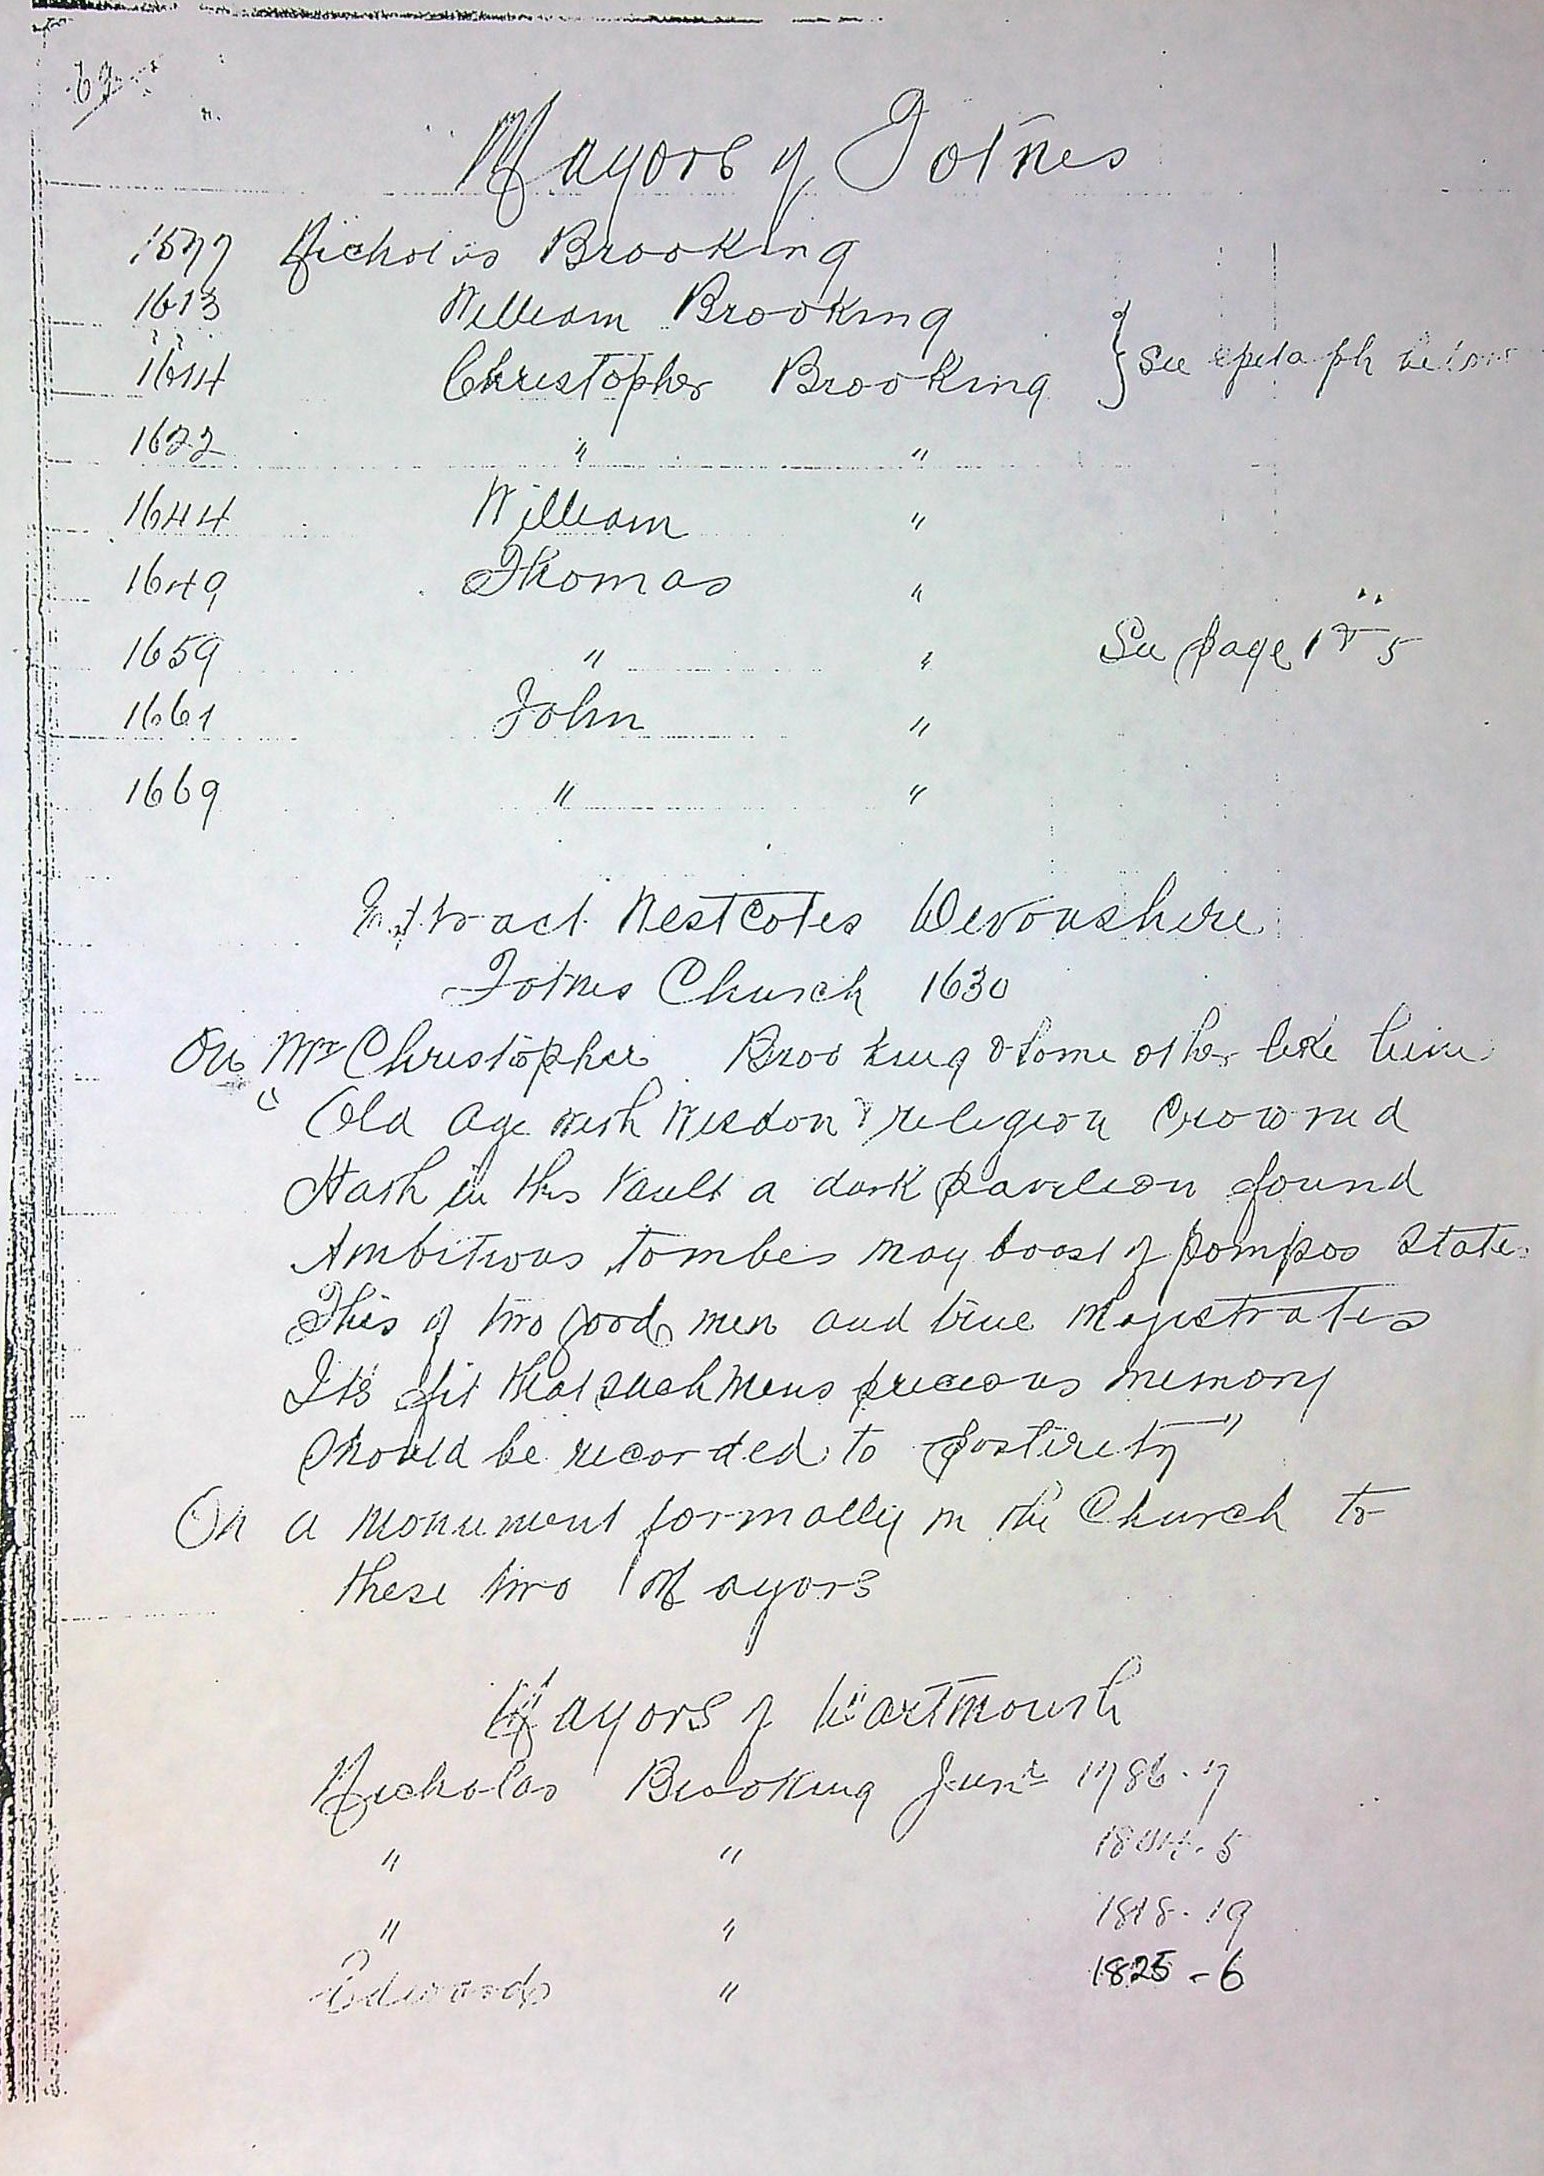 63
Mayors of Totnes
1577 Nicholas Brooking
1613 William Brooking
1614 Christopher Brooking } See epitaph below
1622 " "
1644 William "
1649 Thomas "
1659 " " See page 1 & 5
1661 John "
1669 " "
Extract Westcotes Devonshire
Totnes Church 1630
On Mr Christopher Brooking & some other like him
"Old age with Wisdom & religion Crowned
Hath in this Vault a dark pavilion found
Ambitious tombes may boast of pompos State
This of two good men and true Magistrates
Its fit that such Mens precious memory
Should be recorded to posterety"
On a monument formally in the Church to
these two Mayors
Mayors of Dartmouth
Nicholas Brooking Junr 1786-7
" " 1804-5
" " 1818-19
Edward " 1825-6